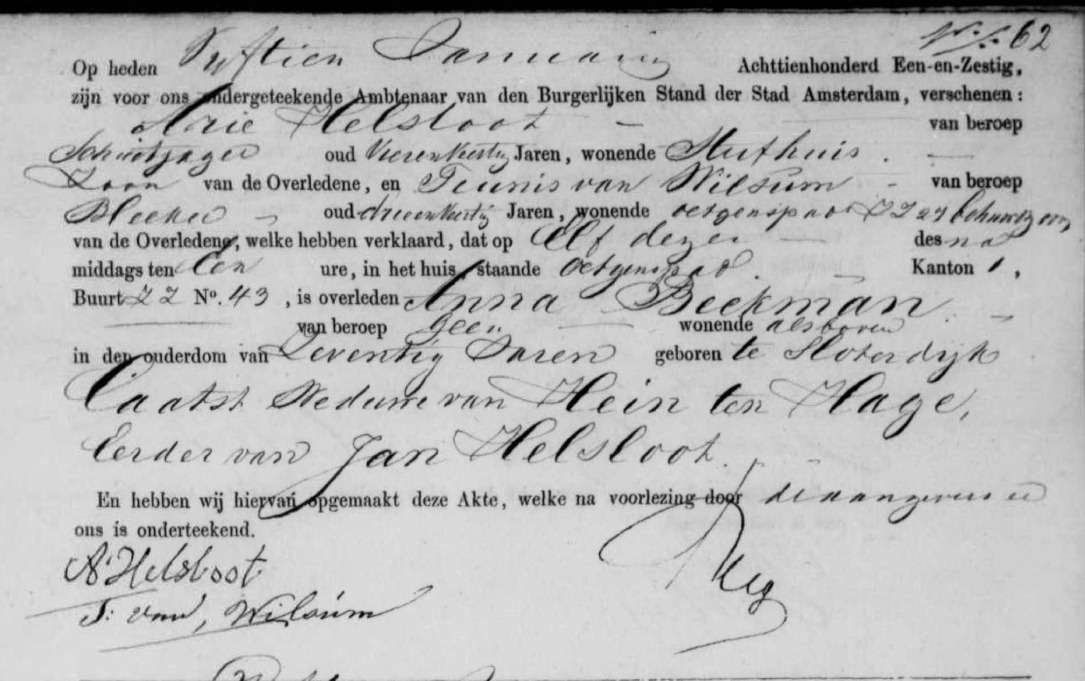 62
Op heden Vyftien Januarij Achttienhonderd Een-en-Zestig,
zijn voor ons ondergeteekende Ambtenaar van den Burgerlijken Stand der Stad Amsterdam, verschenen:
Arie Helsloot van beroep
Schuitjager oud Vierenveertig Jaren, wonende Stuthuis
Zoon van de Overledene, en Teunis van Wilsum van beroep
Bleeker oud drieenveertig Jaren, wonende oetgenspad ZZ 27 behuwdzoon
van de Overledene, welke hebben verklaard, dat op Elf dezer des na
middags ten Een ure, in het huis, staande Oetgenspad Kanton 1,
Buurt ZZ No. 43, is overleden Anna Beekman
van beroep geen wonende alsboven
in den ouderdom van Zeventig Jaren geboren te Sloterdyk
Laatst Weduwe van Hein ten Hage,
Eerder van Jan Helsloot.
En hebben wij hiervan opgemaakt deze Akte, welke na voorlezing door de aangevers en
ons is onderteekend.
A Helsloot
T: van Wilsum